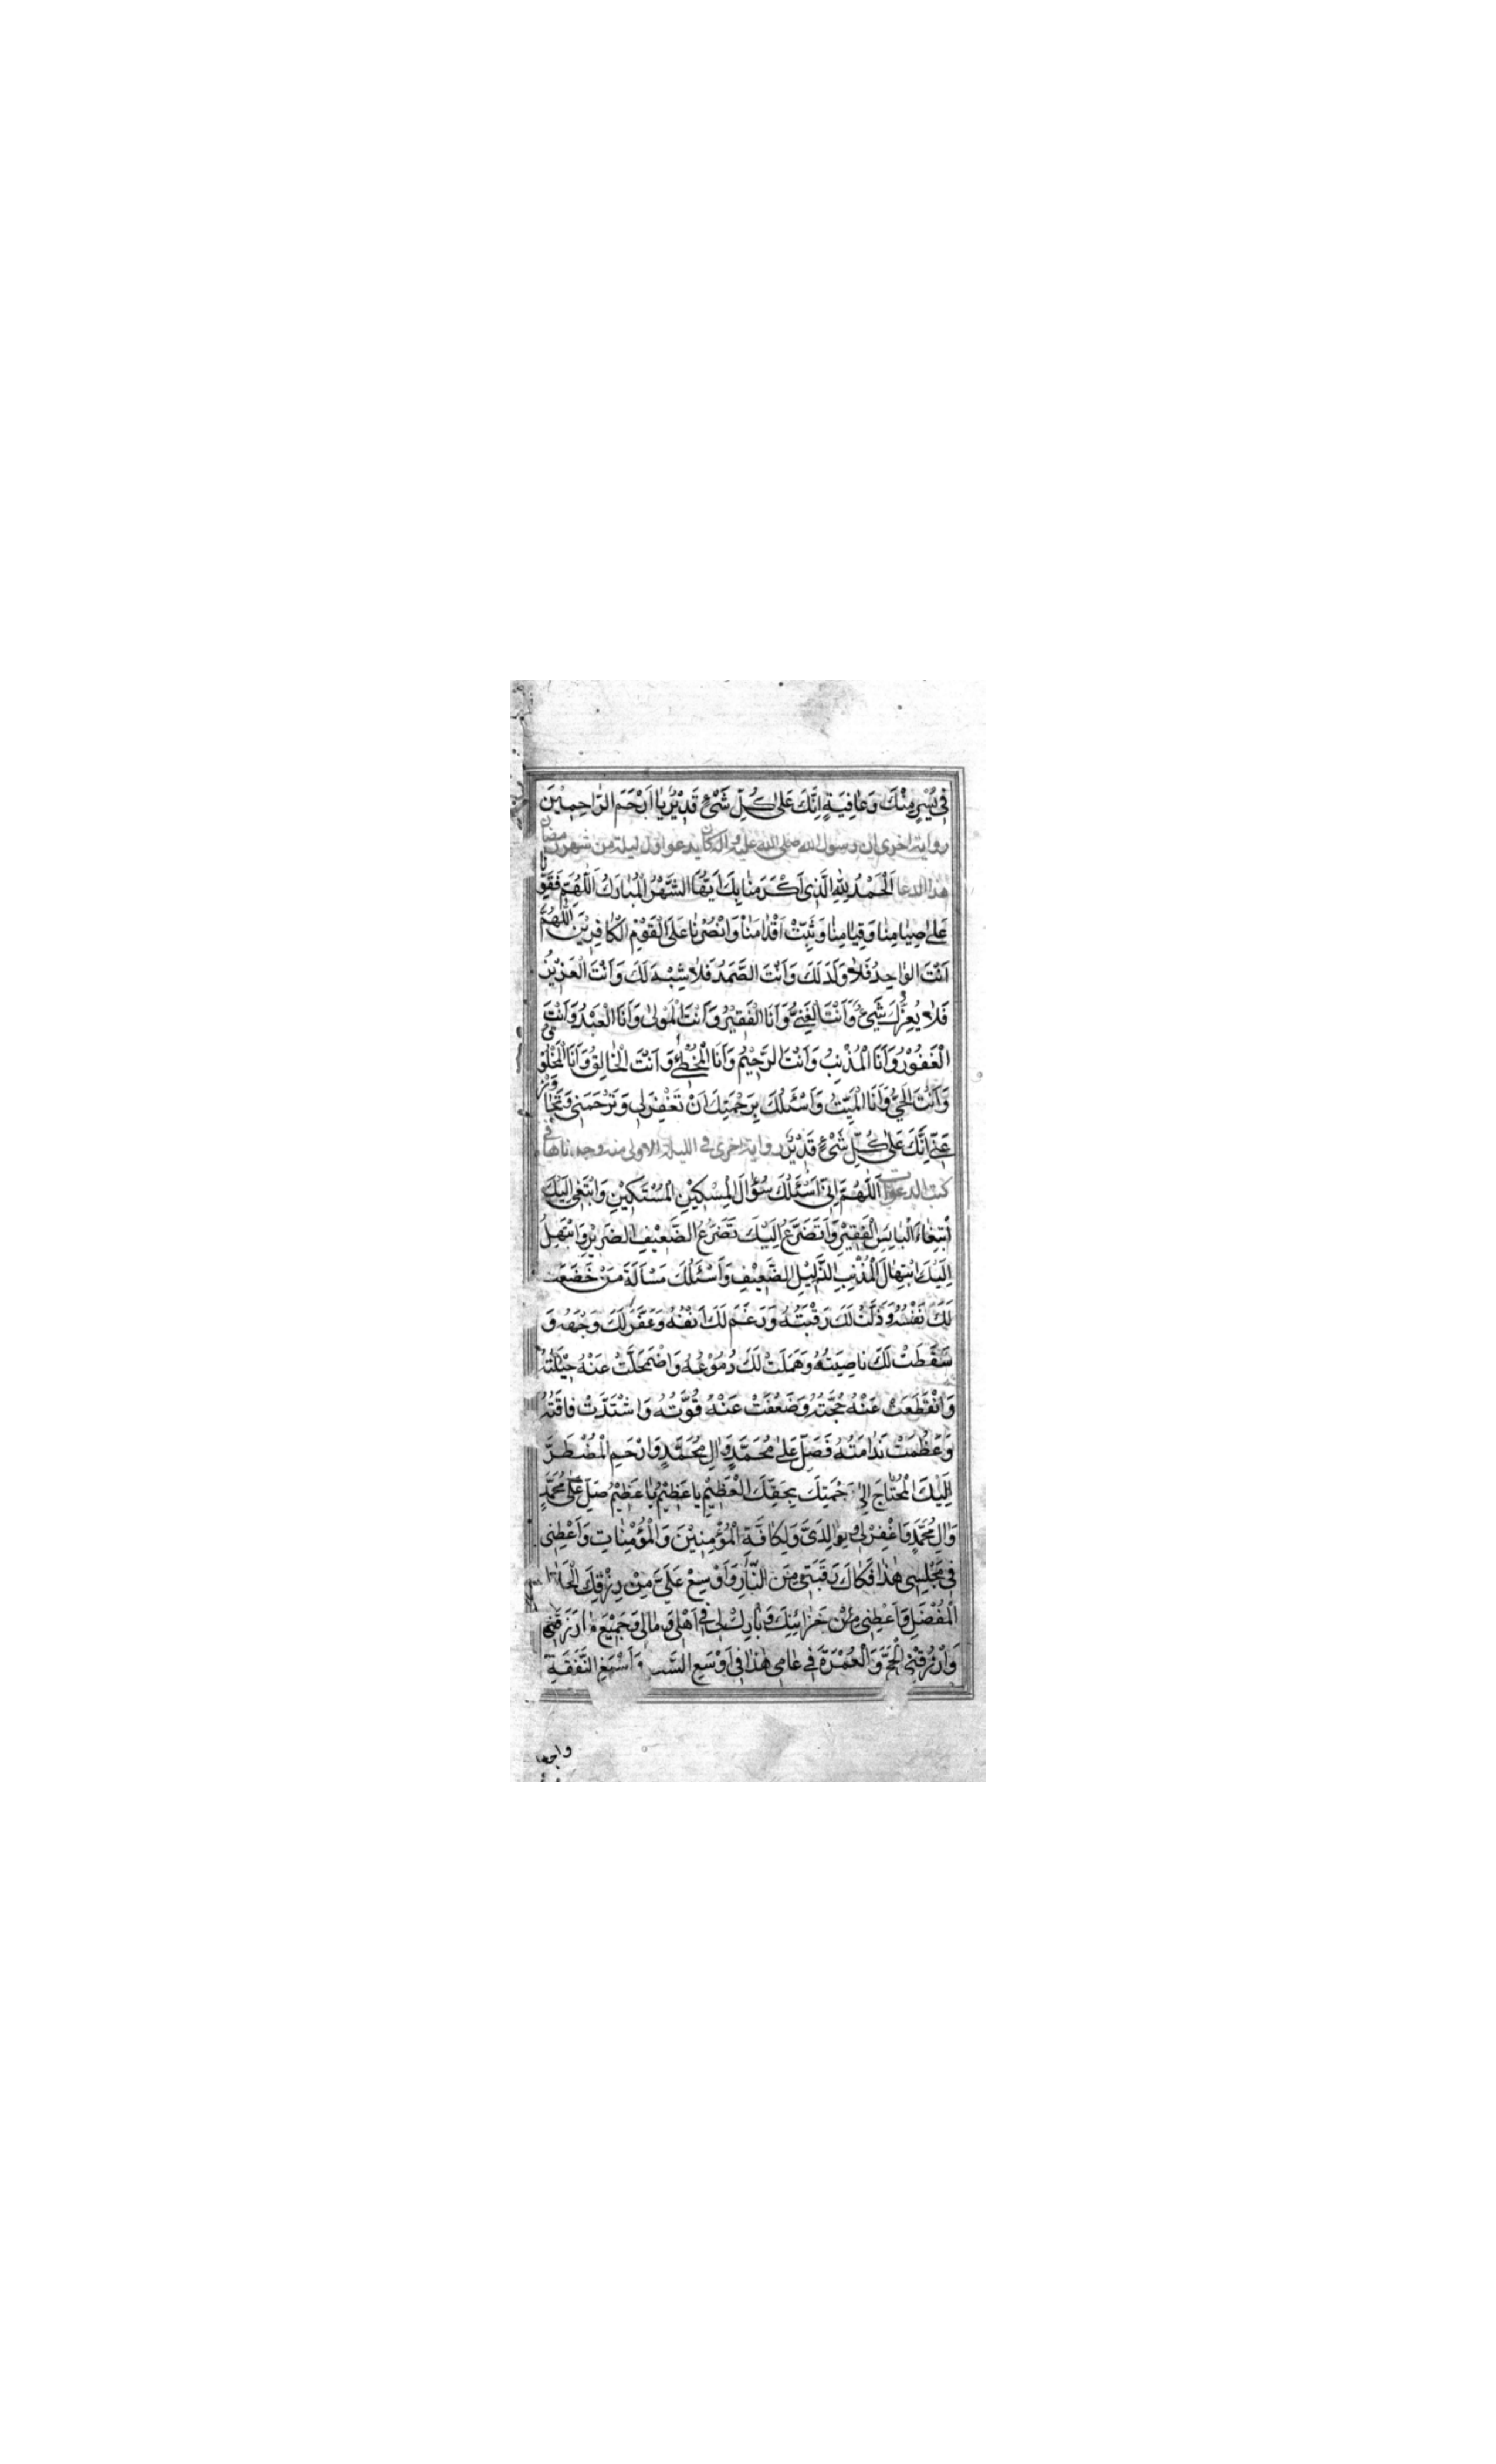 فِي يُسْرٍ مِنْكَ وَعَافِيَةٍ اِنَّكَ عَلىٰ كُلِّ شَيْءٍ قَدِيْرٌ يا اَرْحَمَ الرّاحِمِيْنَ
رواية اخرى ان رسول الله صلى الله عليه واله كان يدعو اول ليلة من شهر رمضان
هذا الدعا اَلْحَمْدُ لِلّٰهِ الَّذِي اَكْرَمَنا بِكَ اَيُّهَا الشَّهْرُ الْمُبارَكُ اَللّٰهُمَّ فَقَوِّنا
عَلىٰ صِيامِنا وَقِيامِنا وَثَبِّتْ اَقْدامَنا وَانْصُرْنا عَلَى الْقَوْمِ الْكافِرِيْنَ اَللّٰهُمَّ
اَنْتَ الْواحِدُ فَلا وَلَدَ لَكَ وَاَنْتَ الصَّمَدُ فَلا شِبْهَ لَكَ وَاَنْتَ الْعَزِيْزُ
فَلا يُعِزُّكَ شَيْءٌ وَاَنْتَ الْغَنِيُّ وَاَنَا الْفَقِيْرُ وَاَنْتَ الْمَوْلىٰ وَاَنَا الْعَبْدُ وَاَنْتَ
الْغَفُوْرُ وَاَنَا الْمُذْنِبُ وَاَنْتَ الرَّحِيْمُ وَاَنَا الْمُخْطِئُ وَاَنْتَ الْخالِقُ وَاَنَا الْمَخْلُوْقُ
وَاَنْتَ الْحَيُّ وَاَنَا الْمَيِّتُ وَاَسْئَلُكَ بِرَحْمَتِكَ اَنْ تَغْفِرَ لِي وَتَرْحَمَنِي وَتَتَجاوَزَ
عَنِّي اِنَّكَ عَلىٰ كُلِّ شَيْءٍ قَدِيْرٌ رواية اخرى في الليلة الاولى منه وجدناها في
كتب الدعوات اَللّٰهُمَّ اِنِّي اَسْئَلُكَ سُؤالَ الْمِسْكِيْنِ الْمُسْتَكِيْنِ وَاَبْتَغِي اِلَيْكَ
ابْتِغاءَ الْبائِسِ الْفَقِيْرِ وَاَتَضَرَّعُ اِلَيْكَ تَضَرُّعَ الضَّعِيْفِ الضَّرِيْرِ وَاَبْتَهِلُ
اِلَيْكَ ابْتِهالَ الْمُذْنِبِ الذَّلِيْلِ الضَّعِيْفِ وَاَسْئَلُكَ مَسْاَلَةَ مَنْ خَضَعَتْ
لَكَ نَفْسُهُ وَذَلَّتْ لَكَ رَقَبَتُهُ وَرَغَمَ لَكَ اَنْفُهُ وَعَفَّرَ لَكَ وَجْهَهُ وَ
سَقَطَتْ لَكَ ناصِيَتُهُ وَهَمَلَتْ لَكَ دُمُوْعُهُ وَاضْمَحَلَّتْ عَنْهُ حِيْلَتُهُ
وَانْقَطَعَتْ عَنْهُ حُجَّتُهُ وَضَعُفَتْ عَنْهُ قُوَّتُهُ وَاشْتَدَّتْ فاقَتُهُ
وَعَظُمَتْ نَدامَتُهُ فَصَلِّ عَلىٰ مُحَمَّدٍ وَالِ مُحَمَّدٍ وَارْحَمِ الْمُضْطَرَّ
اِلَيْكَ الْمُحْتاجَ اِلىٰ رَحْمَتِكَ بِحَقِّكَ الْعَظِيْمِ يا عَظِيْمُ يا عَظِيْمُ صَلِّ عَلىٰ مُحَمَّدٍ
وَالِ مُحَمَّدٍ وَاغْفِرْ لِي وَلِوالِدَيَّ وَلِكافَّةِ الْمُؤْمِنِيْنَ وَالْمُؤْمِناتِ وَاَعْطِنِي
فِي مَجْلِسِي هٰذا فَكاكَ رَقَبَتِي مِنَ النّارِ وَاَوْسِعْ عَلَيَّ مِنْ رِزْقِكَ الْحَلالِ
الْمُفْضَلِ وَاَعْطِنِي مِنْ خَزائِنِكَ وَبارِكْ لِي فِي اَهْلِي وَمالِي وَجَمِيْعِ ما رَزَقْتَنِي
وَارْزُقْنِي الْحَجَّ وَالْعُمْرَةَ فِي عامِي هٰذا فِي اَوْسَعِ وَاَسْبَغِ النَّفَقَةِ